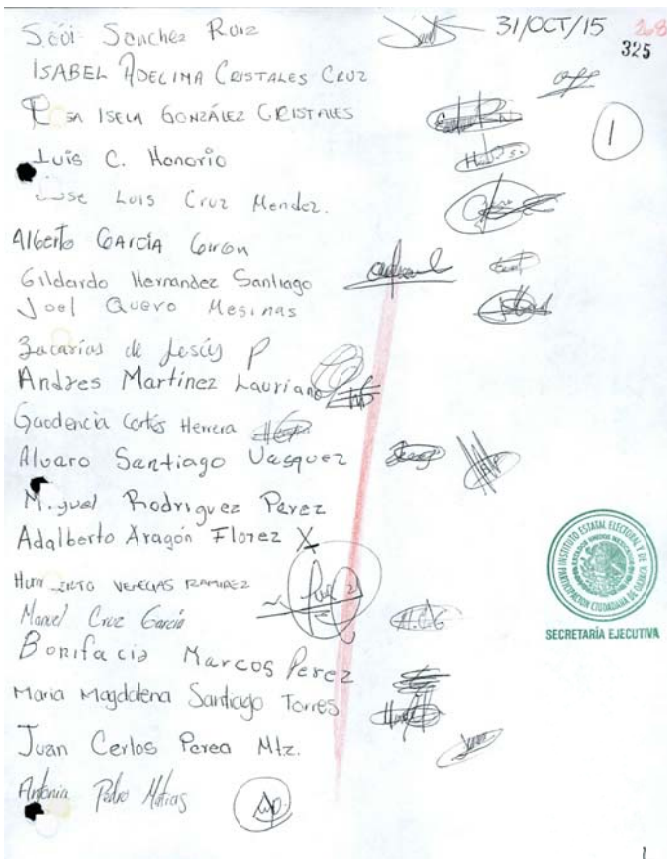 Saúl Sánchez Ruiz 31/OCT/15 268
325
ISABEL ADELIMA CRISTALES CRUZ
ISELA GONZÁLEZ CRISTALES
1
Luis C. Honorio
Jose Luis Cruz Mendez.
Alberto GARCIA Giron
Gildardo Hernandez Santiago
Joel Quero Mesinas
Zacarías de Jesús P
Andres Martínez Lauriano
Gaodencia Cortés Herrera
Alvaro Santiago Vasquez
Miguel Rodriguez Perez
Adalberto Aragón Florez X
VENEGAS RAMIREZ
Manuel Cruz García
Bonifacia Marcos Perez
Maria Magdalena Santiago Torres
Juan Carlos Perea Mtz.
Antonia Pedro Matias
INSTITUTO ESTATAL ELECTORAL Y DE PARTICIPACIÓN CIUDADANA DE OAXACA
ESTADOS UNIDOS MEXICANOS
SECRETARÍA EJECUTIVA